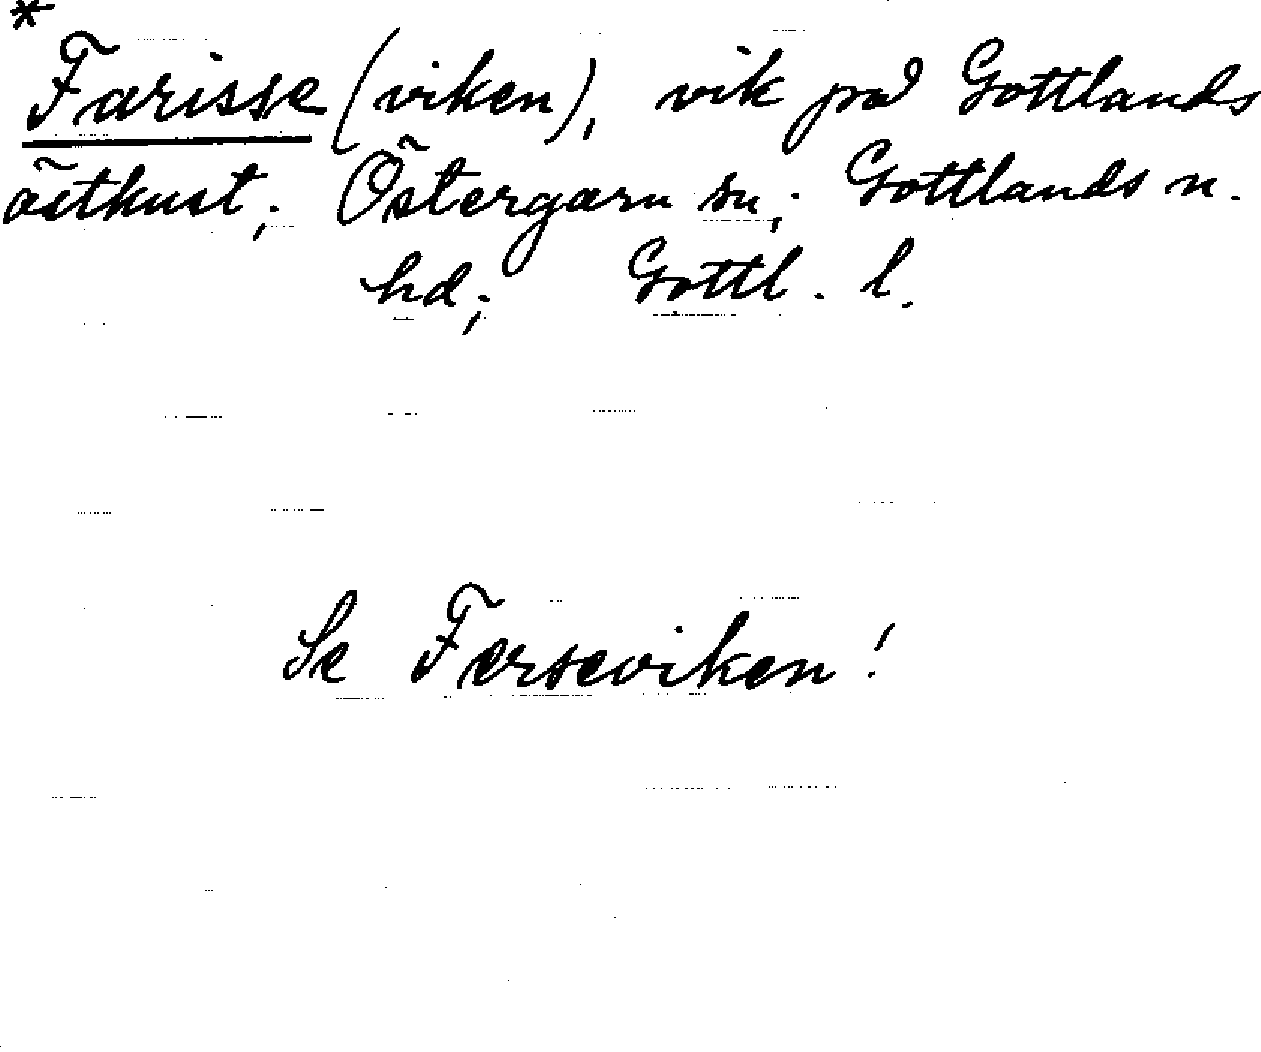 *
Farisse (viken), vik på Gottlands
östkust; Östergarn sn; Gottlands n.
hd; Gottl. l.
Se Ferseviken!